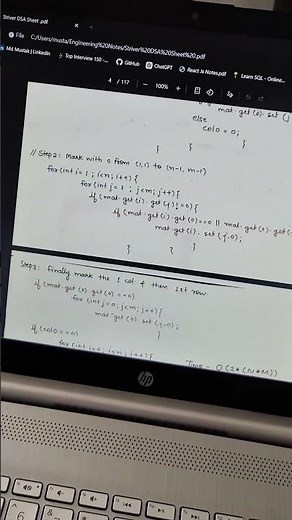 Striver DSA Sheet .pdf
File C:/Users/musta/Engineering%20Notes/Striver%20DSA%20Sheet%20.pdf
Md Mustak | LinkedIn Top Interview 150 -... GitHub ChatGPT React Js Notes.pdf Learn SQL - Online...
4 / 117 − 100% +
mat.get(0).set(j
else
col0 = 0;
}
} }
// Step 2: Mark with 0 from (1,1) to (n-1, m-1)
for(int i=1; i<n; i++){
for(int j=1; j<m; j++){
if(mat.get(i).get(j)!=0){
if(mat.get(i).get(0)==0 || mat.get(0).get(
mat.get(i).set(j,0);
}
} }
Step 3: Finally mark the 1 col & then 1st row.
if(mat.get(0).get(0)==0)
for(int j=0; j<m; j++){
mat.get(0).set(j,0);
}
if(col0==0)
for(int i=0; i<n; i++){
Time - O(2*(N*M))
hp
6
&